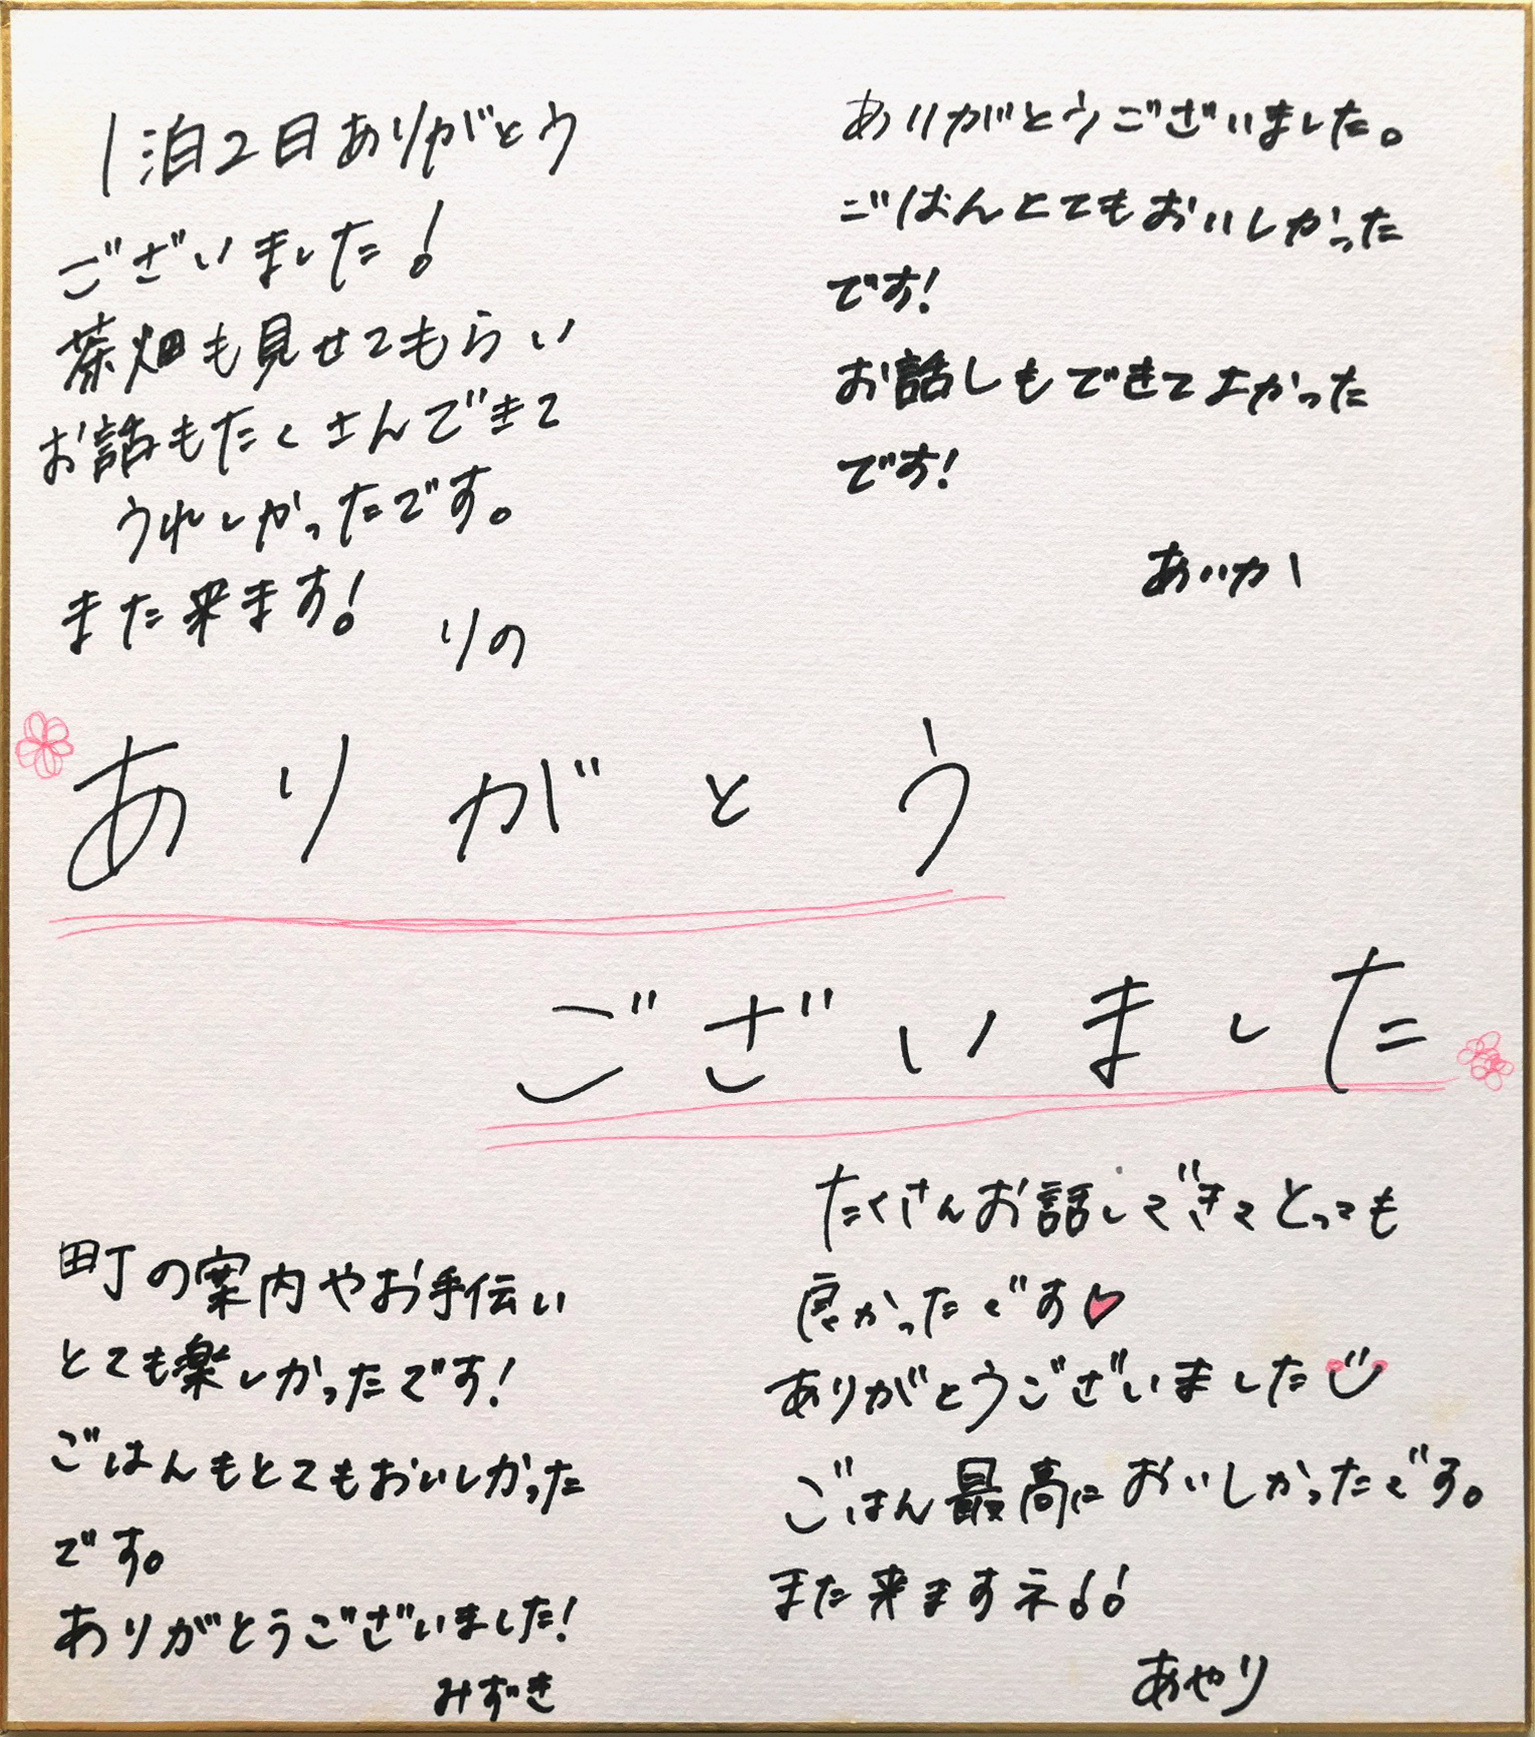 1泊2日ありがとう
ございました!
茶畑も見せてもらい
お話もたくさんできて
うれしかったです。
また来ます!
りの
ありがとうございました。
ごはんとてもおいしかった
です!
お話しもできてよかった
です!
あいか
ありがとう
ございました
町の案内やお手伝い
とても楽しかったです!
ごはんもとてもおいしかった
です。
ありがとうございました!
みずき
たくさんお話しできてとっても
良かったです♡
ありがとうございました
ごはん最高においしかったです。
また来ますネ!!
あやり